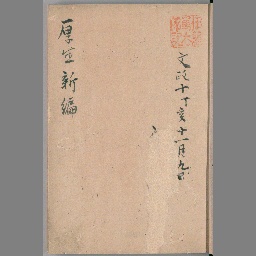 文政十丁亥十一月九日
厚生新編